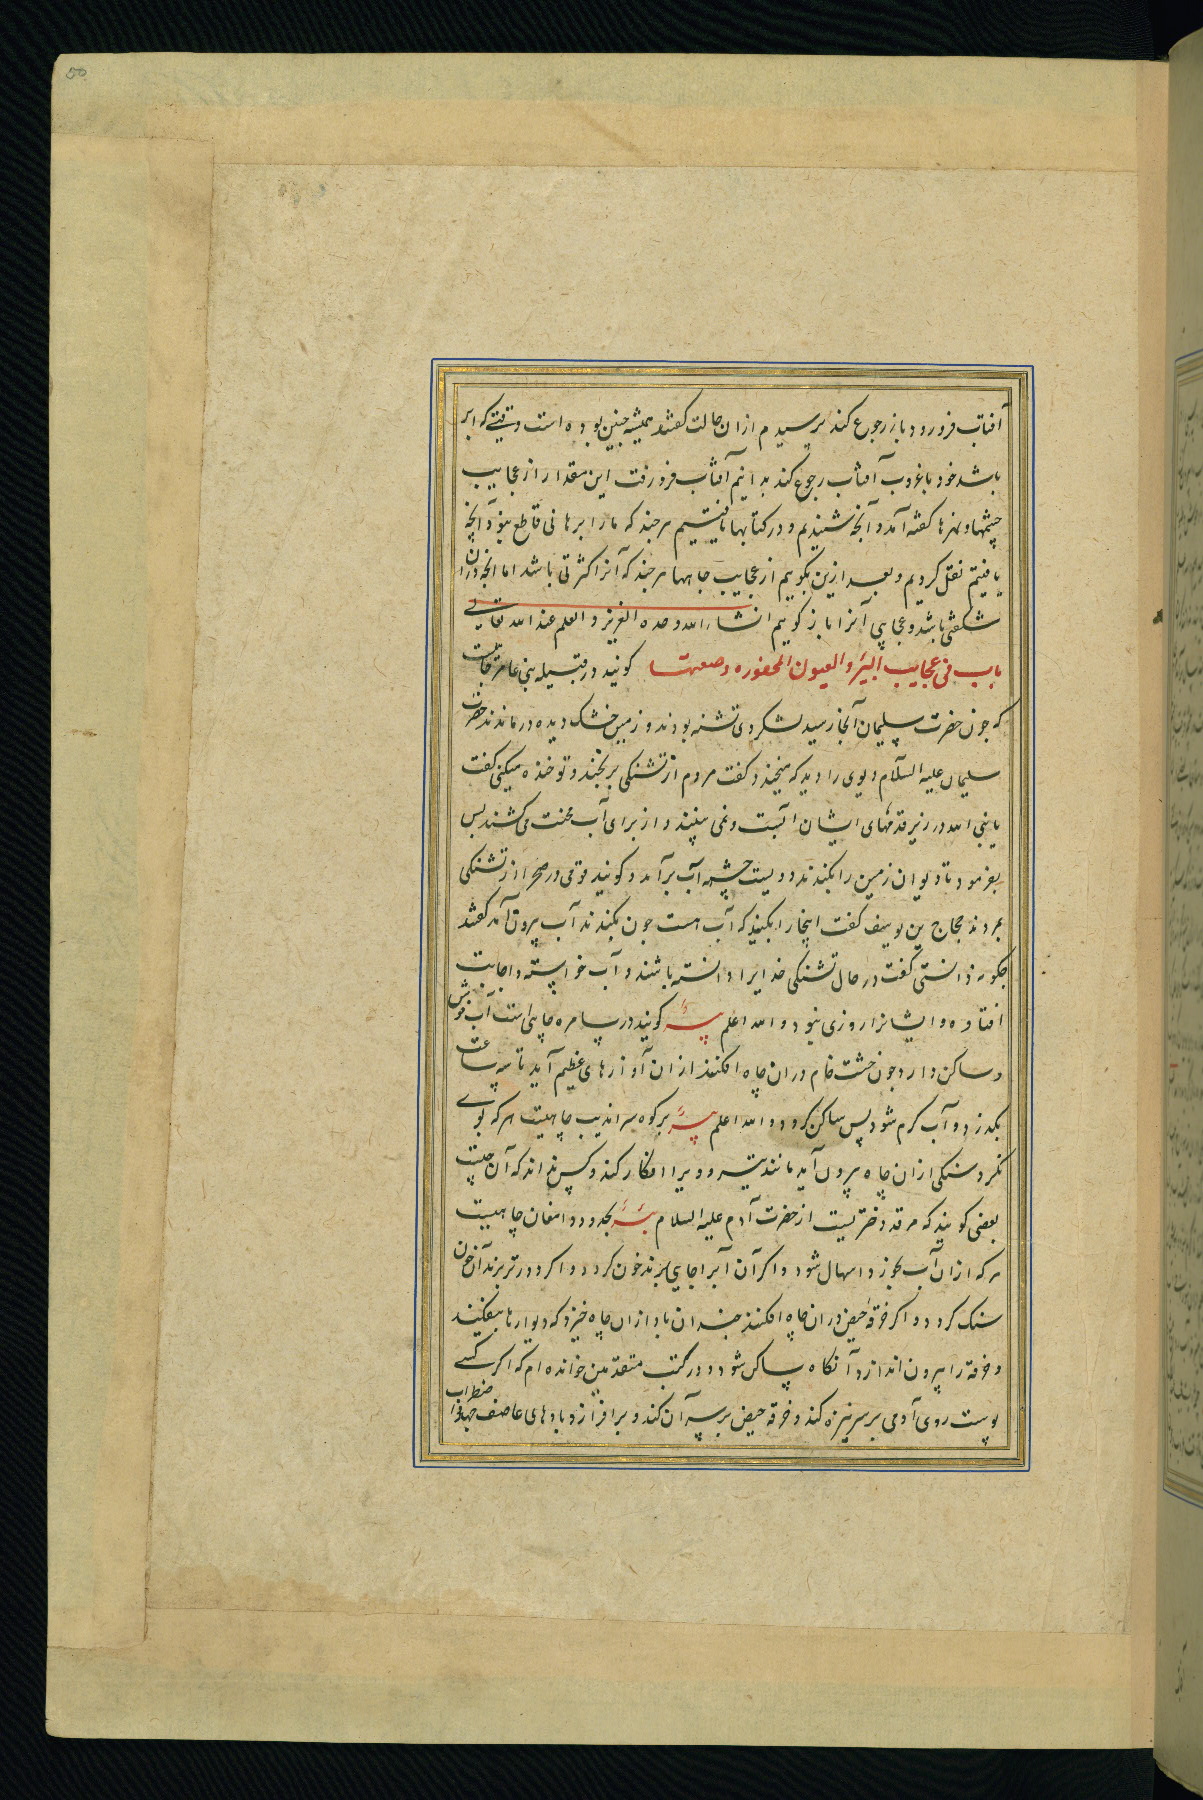 50
آفتاب فرو رود باز رجوع کند پرسیدم ازان حالت کفتند همیشه چنین بوده است وقتیی که ابر
باشد خود با غروب آفتاب رجوع کند بدانیم آفتاب فرو رفت این مقدار از عجایب
چشمها و نهرها کفته آمد و آنچه شنیدیم و در کتابها یافتیم هر چند که ما را برهانی قاطع نبود آنچه
یافتیم نقل کردیم و بعد ازین بکوییم از عجایب چاهها هر چند که آنرا کثرتی باشد اما آنچه دران
شکفتی باشد و عجایبی آنرا باز کوییم انشاء الله وحده العزیز و العلم عند الله تعالی
باب فی عجایب البئر و العیون المحفوره و صفتها کویند در قبیله بنی عامر
که چون حضرت سلیمان آنجا رسید لشکر وی تشنه بودند و زمین خشک دیده درماندند حضرت
سلیمان علیه السلام دیوی را دید که میخندد کفت مردم از تشنکی برنجند و تو خنده میکنی کفت
یا نبی الله در زیر قدمهای ایشان آبست و نمی بینند و از برای آب محنت می کشند پس
بفرمود تا دیوان زمین را بکندند و دویست چشمه آب برآمد و کویند قومی در صحرا از تشنکی
بمردند حجاج بن یوسف کفت اینجا را بکنید که آب هست چون بکندند آب بیرون آمد کفتند
چکونه دانستی کفت در حال تشنکی خدایرا دانسته باشند و آب خواسته و اجابت
افتاده و ایشانرا روزی نبود و الله اعلم بئر کویند در سامره چاهی است آب خوش
و ساکن دارد چون خشت خام دران چاه افکنند ازان آوازهای عظیم آید تا سه ساعت
بکذرد و آب کرم شود پس ساکن کردد و الله اعلم بئر بر کوه سراندیب چاهیست هر که بوی
نکرد سنکی ازان چاه بیرون آید مانند تیر و ویرا افکار کند و کس نداند که آن چیست
بعضی کویند که مرقد دختریست از حضرت آدم علیه السلام بئر بحدود دامغان چاهیست
هر که ازان آب بخورد اسهال شود و اکر آن آبرا جایی برند خون کردد و اکر دورتر برند آن خون
سنک کردد و اکر خرقهٔ حیض دران چاه افکنند چندان باد ازان چاه خیزد که دیوارها بیفکند
و خرقه را بیرون اندازد آنکاه ساکن شود و در کتب متقدمین خوانده ام که اکر کسی
پوست روی آدمی بر سر نیزه کند و خرقه حیض بر سر آن کند و برافرازد بادهای عاصف